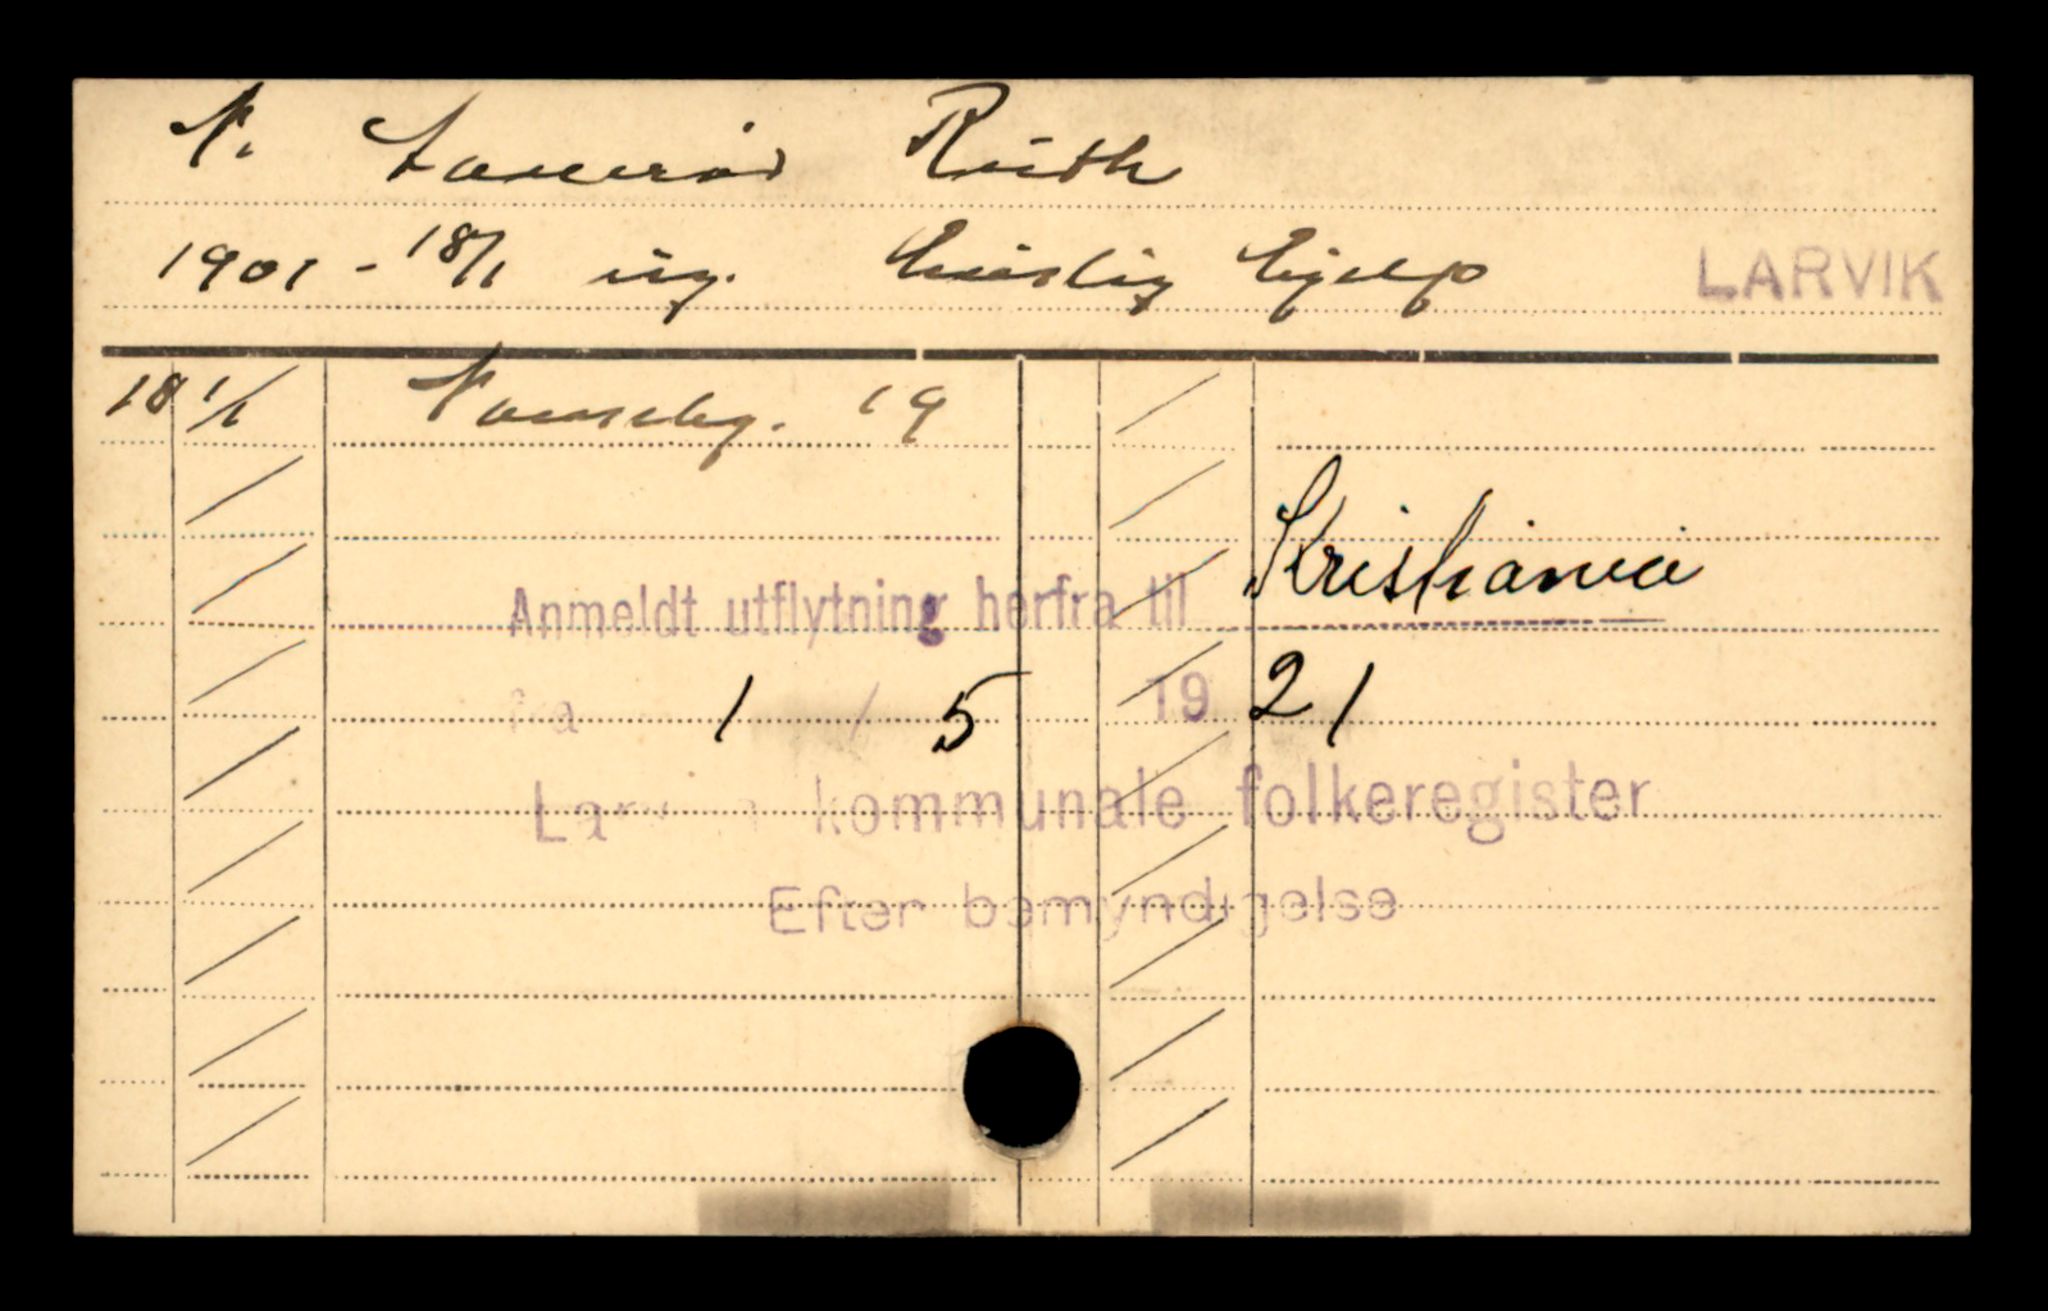 Ruth
1901 - 18/1 ug. huslig hjelp LARVIK
18 1/1 19
Anmeldt utflytning herfra til Kristiania
fra 1 / 5 19 21
kommunale folkeregister
Efter bemyndigelse